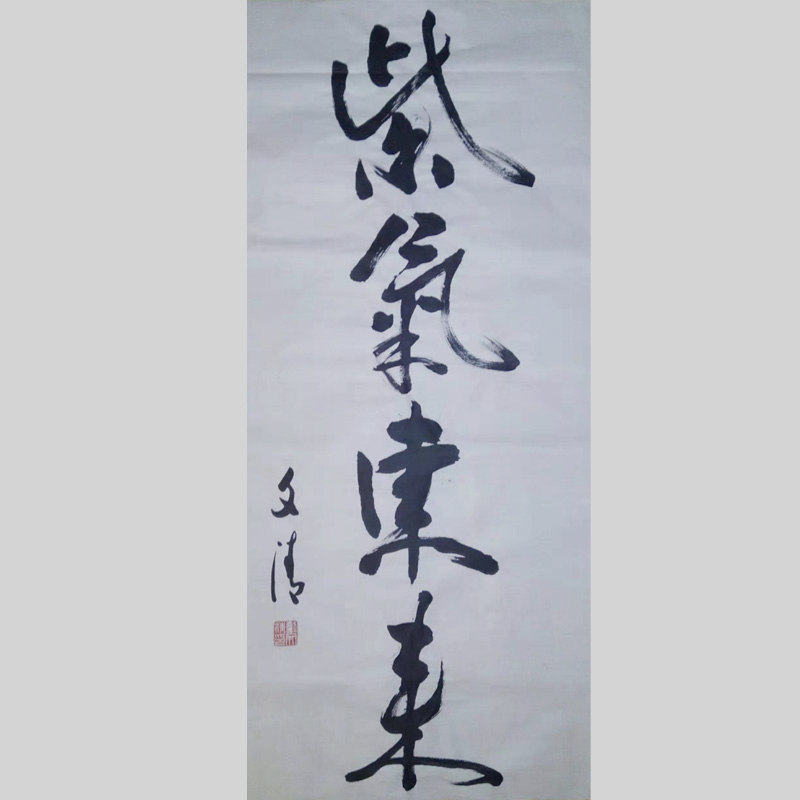 紫氣東来
文清